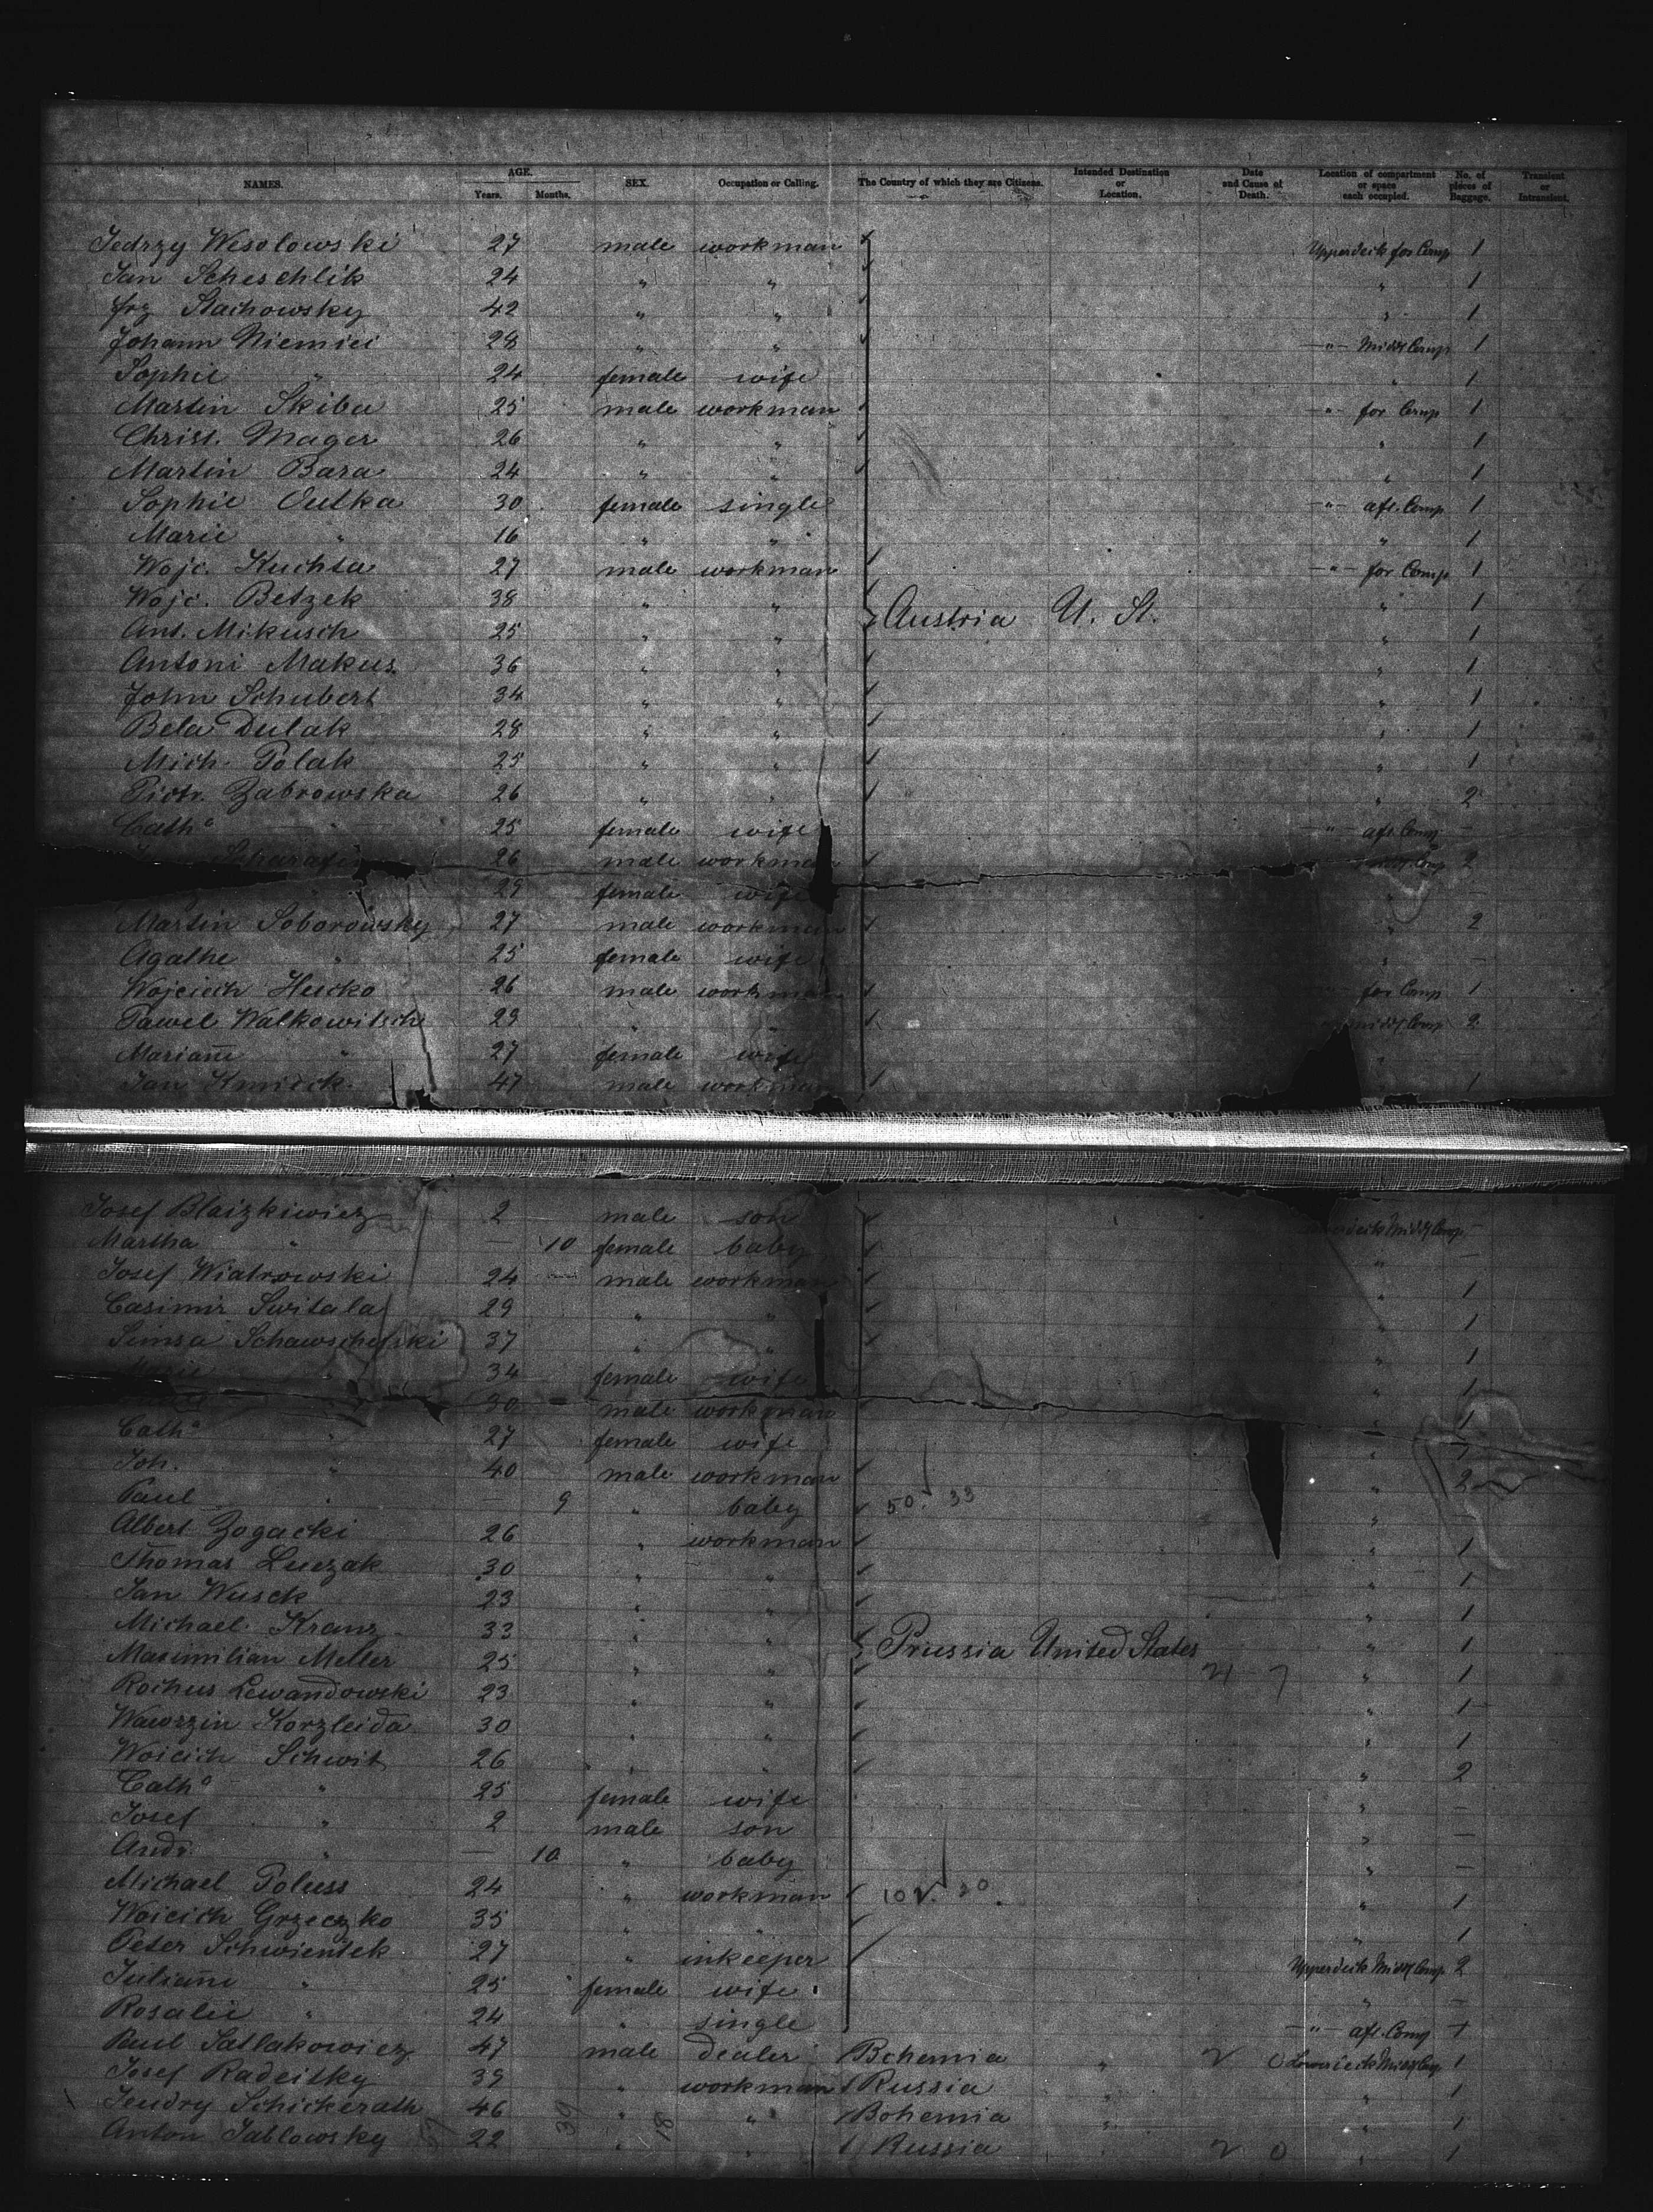 NAMES. AGE. Years. Months. SEX. Occupation or Calling. The Country of which they are Citizens. Intended Destination or Location. Date and Cause of Death. Location of compartment or space each occupied. No. of pieces of Baggage. Transient or Intransient.
Jedrzy Wesolowski 27 male workman Upperdeck for Comp 1
Jan Scheschlik 24 " " " 1
Frz Stachowsky 42 " " " 1
Johann Niemiei 28 " " -"- Middl Comp 1
Sophie " 24 female wife " 1
Martin Skiba 25 male workman -"- for Comp 1
Christ. Mager 26 " " " 1
Martin Bara 24 " " " 1
Sophie Outka 30 female single -"- aft. Comp 1
Marie " 16 " " " 1
Wojc. Kuchta 27 male workman -"- for Comp 1
Wojc. Betzek 38 " " Austria U. St. " 1
Ant. Mikusch 25 " " " 1
Antoni Makus 36 " " " 1
John Schubert 34 " " " 1
Bela Dulak 28 " " " 1
Mich. Polak 25 " " " 1
Piotr. Zabrowska 26 " " " 2
Cath° " 25 female wife -"- aft Comp —
26 male workman Middl. Comp 2
" 29 female wife " —
Martin Soborowsky 27 male workman " 2
Agathe " 25 female wife " —
Wojciech Hucko 26 male workman for Comp 1
Pawel Walkowitsch 29 " " Middl Comp 2
Mariañe " 27 female wife "
Jan Kmieck 47 male workman " 1
Josef Blaizkiewicz 2 male son Middl Comp —
Martha " — 10 female baby " —
Josef Wiatrowski 24 male workman " 1
Casimir Switala 29 " " " 1
Simsa Schawschefski 37 " " " 1
34 female wife " 1
30 male workman " 1
Cath° " 27 female wife " 1
Joh. " 40 male workman " 2
Paul " — 9 " baby 50. 33 " —
Albert Zogacki 26 " workman " 1
Thomas Luczak 30 " " " 1
Jan Wusck 23 " " " 1
Michael Kranz 33 " " Prussia United States " 1
Maximilian Meller 25 " " " 1
Rochus Lewandowski 23 " " " 1
Wawrzin Korzleida 30 " " " 1
Woicich Schwit 26 " " " 2
Cath° " 25 female wife " —
Josef " 2 male son " —
Andr. " — 10 " baby " —
Michael Poluss 24 " workman " 1
Woicich Grzeczko 35 " " " 1
Peter Schwientek 27 " inkeeper Upperdeck Middl Comp 2
Juliañe " 25 female wife " —
Rosalie " 24 " single -"- aft. Comp 1
Paul Satlakowicz 47 male dealer Bohemia " 2 0 Lowerdeck Middl Comp 1
Josef Radeitky 39 " workman Russia " " 1
Jendry Schickerath 46 " " Bohemia " " 1
Anton Jablowsky 22 " " Russia " 2 0 " 1